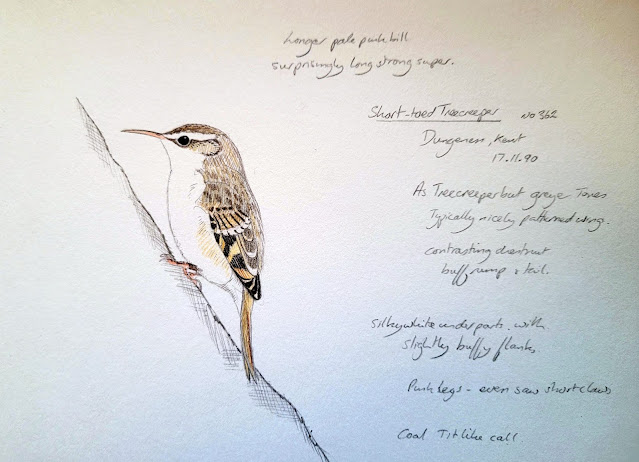 Longer pale pink bill
surprisingly long strong super.
Short-toed Treecreeper No 362
Dungeness, Kent
17.11.90
As Treecreeper but greyer Tones
Typically nicely patterned wing.
contrasting chestnut
buff rump & tail.
silky white underparts with
slightly buffy flanks
Pink legs - even saw short claws
Coal Tit like call